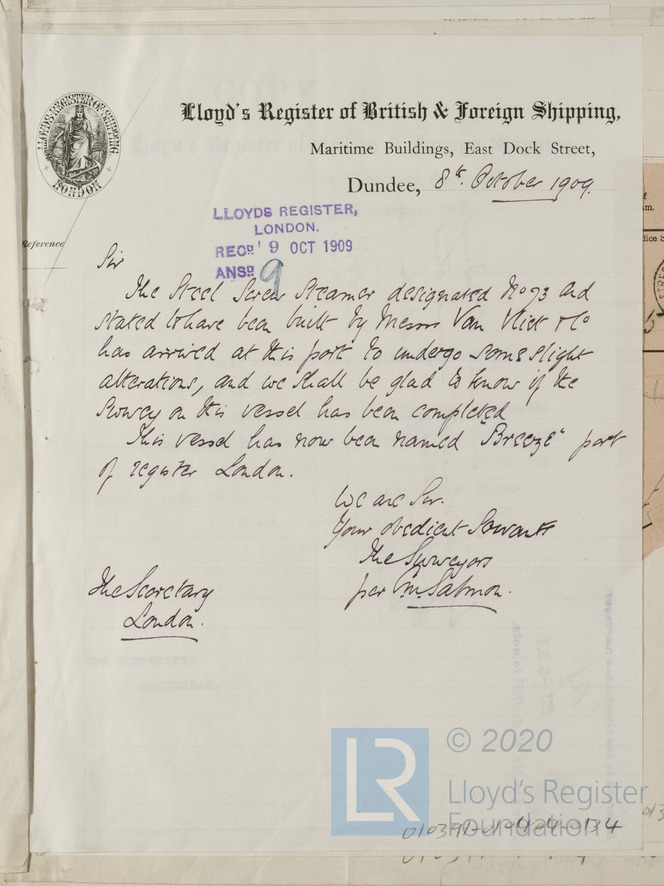 LLOYD'S REGISTER OF SHIPPING
LONDON
Lloyd's Register of British & Foreign Shipping,
Maritime Buildings, East Dock Street,
Dundee, 8th October 1909.
LLOYDS REGISTER,
LONDON.
RECD 19 OCT 1909
ANSD 9
Reference
Sir
The Steel Screw Steamer designated No 73 and
stated to have been built by Messrs Van Vliet & Co
has arrived at this port to undergo some slight
alterations, and we shall be glad to know if the
Survey on this vessel has been completed
This vessel has now been named "Breeze" port
of register London.
We are Sir.
Your obedient Servants
The Surveyors
per M. Salmon.
The Secretary
London.
© 2020
LR
Lloyd's Register
Foundation